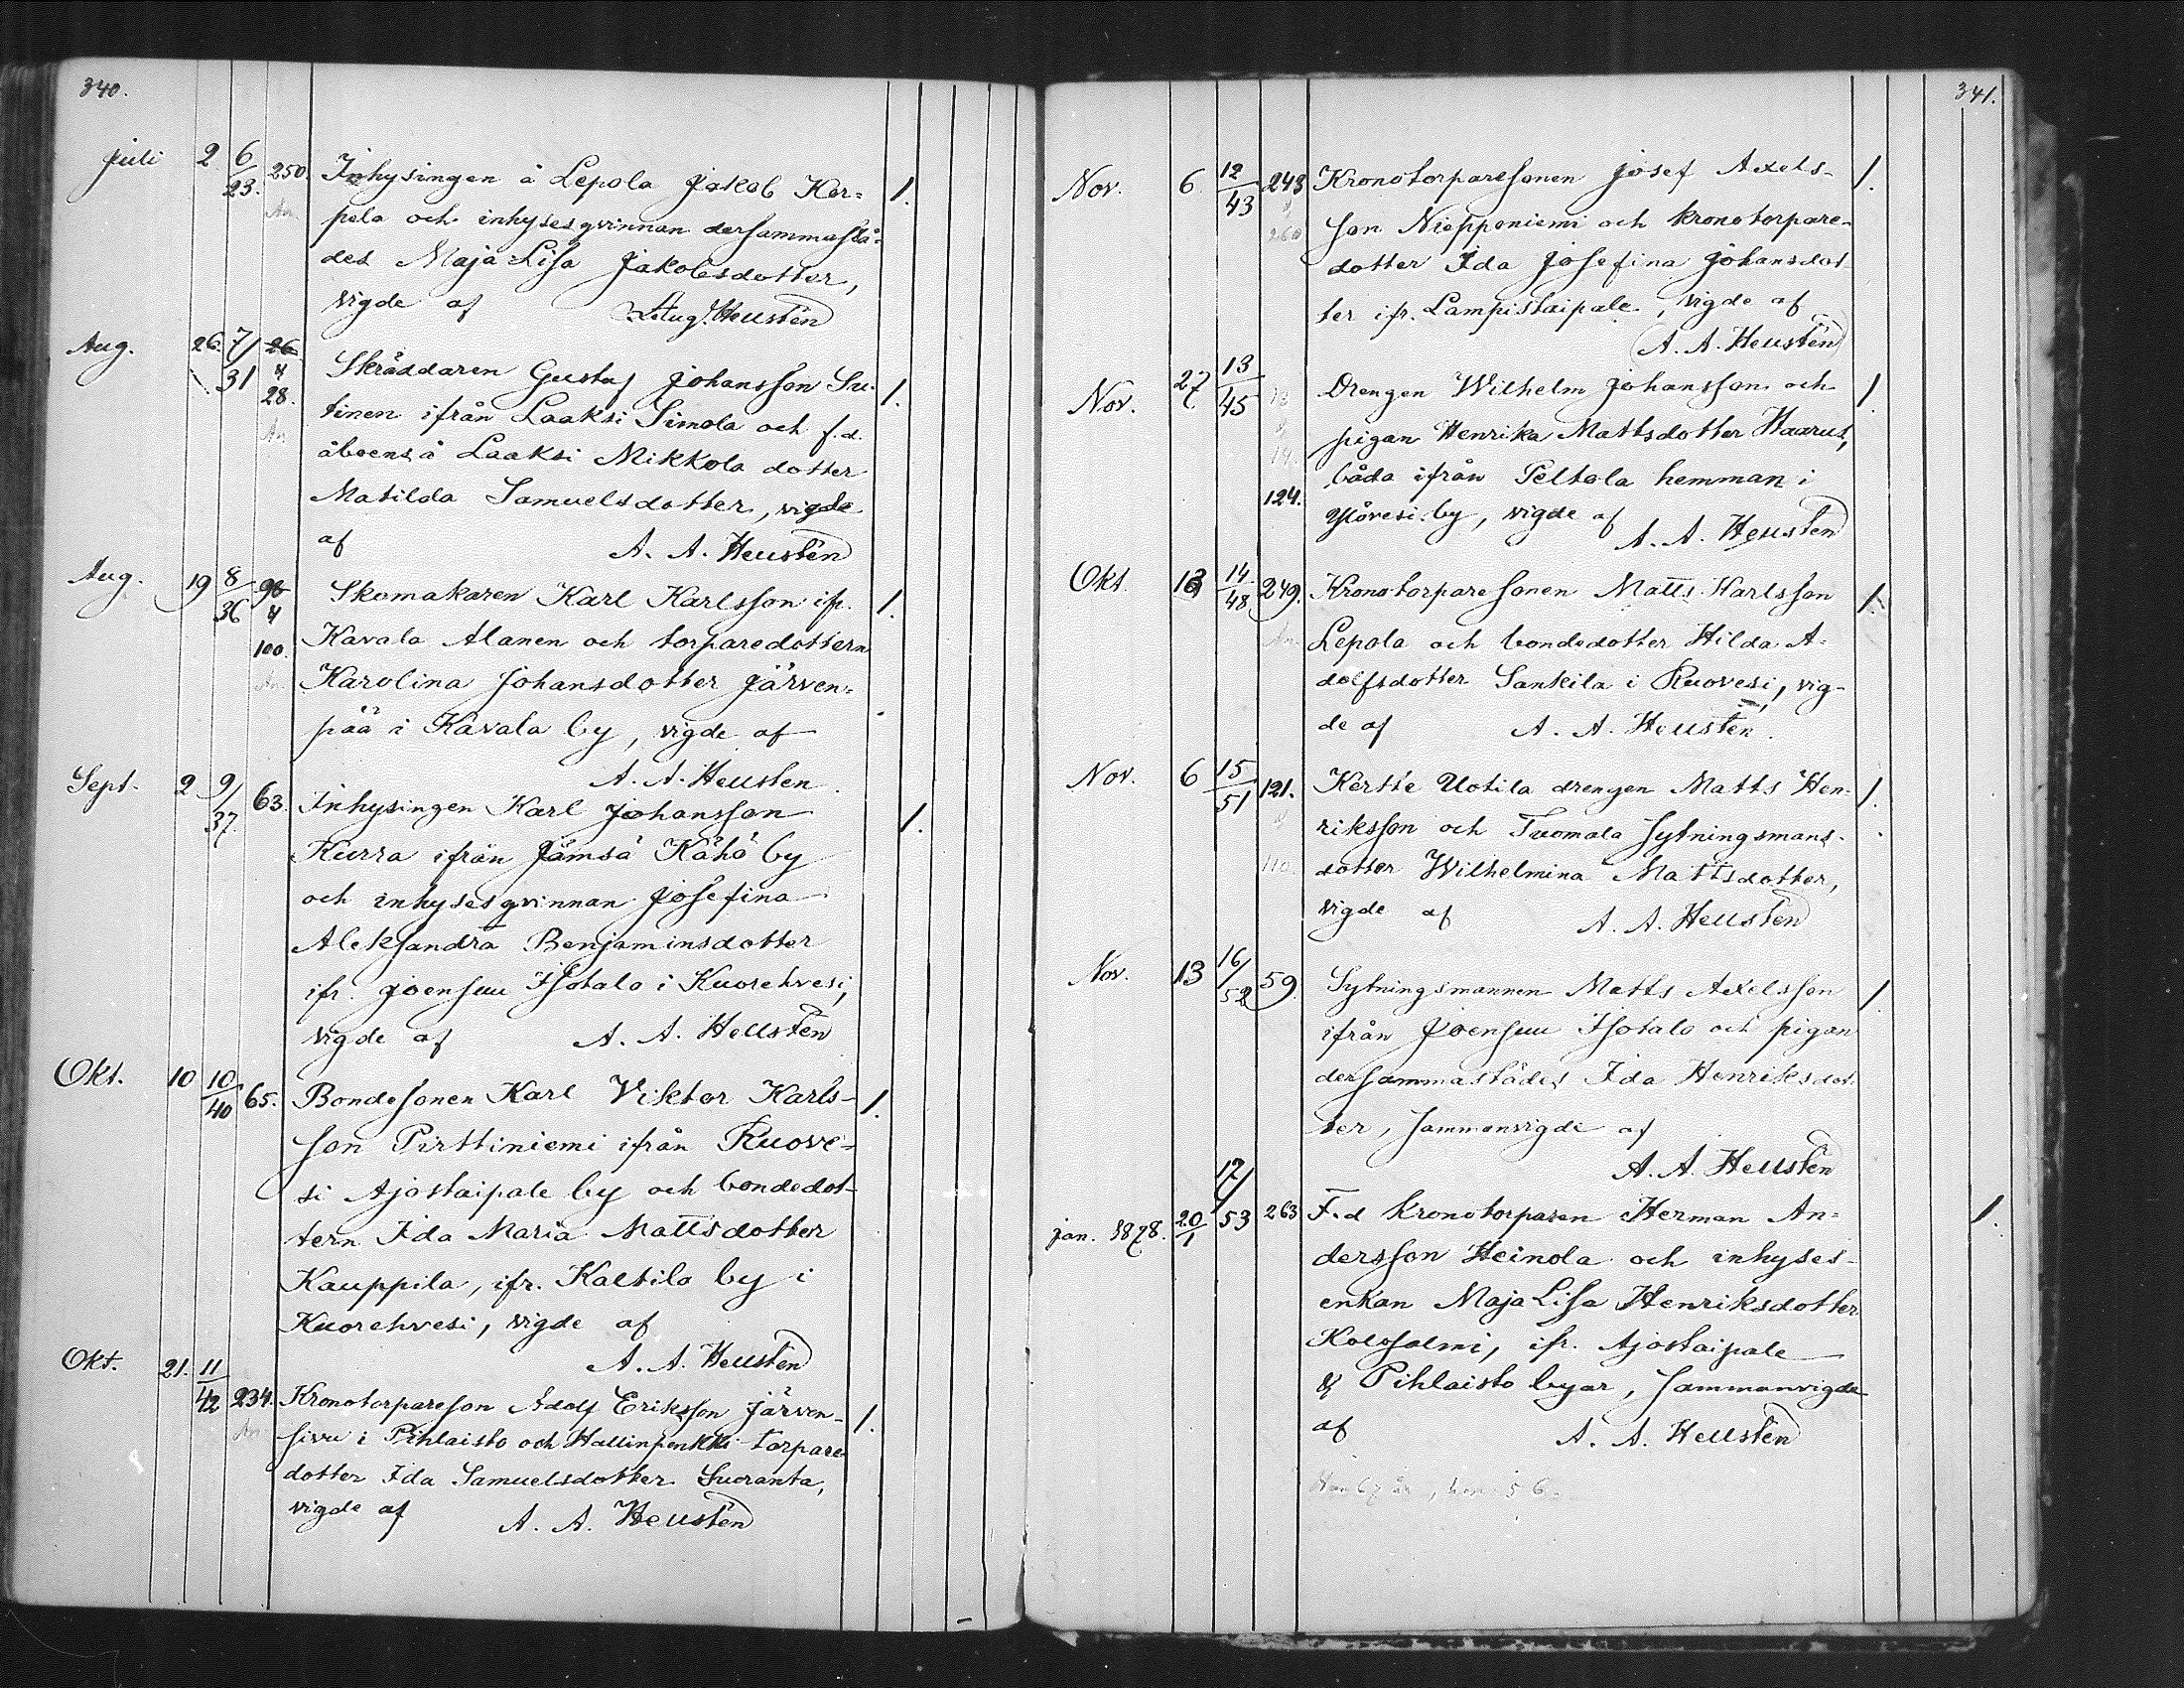 340.
Juli 2 6/23. 250. Inhysingen å Lepola Jakob Ker= 1.
An. pela och inhysesqvinnan dersammastä=
des Maja Lisa Jakobsdotter,
vigde af Aug. Heusten
Aug. 26. 7/31 26 & 28. Skräddaren Gustaf Johansson Su- 1.
An tinen ifrån Laaksi Simola och f.d.
åboens å Laaksi Mikkola dotter
Matilda Samuelsdotter, vigde
af A. A. Heusten
Aug. 19 8/36 98 & 100. Skomakaren Karl Karlsson ifr. 1.
Kavala Alanen och torparedottern
An. Karolina Johansdotter Järven=
pää i Kavala by, vigde af
A. A. Heusten.
Sept. 2 9/37. 63. Inhysingen Karl Johansson 1.
Kurra ifrån Jämsä Kähö by
och inhysesqvinnan Josefina
Aleksandra Benjaminsdotter
ifr. Joensuu Isotalo i Kuorehvesi,
vigde af A. A. Heusten
Okt. 10 10/40 65. Bondesonen Karl Viktor Karls- 1.
son Pirttiniemi ifrån Ruove-
si Ajostaipale by och bondedot-
tern Ida Maria Mattsdotter
Kauppila, ifr. Kaltila by i
Kuorehvesi, vigde af
A. A. Heusten
Okt. 21. 11/42 234. Kronotorpareson Adolf Eriksson Järven- 1.
An sivu i Pihlaisto och Hallinpenkki torpare
dotter Ida Samuelsdotter Suoranta,
vigde af A. A. Heusten
341.
Nov. 6 12/43 243 & 260 Kronotorparesonen Josef Axels- 1.
son Niepponiemi och kronotorpare-
dotter Ida Josefina Johansdot-
ter ifr. Lampistaipale, vigde af
A. A. Heusten
Nov. 27 13/45 Drengen Wilhelm Johansson och 1.
pigan Henrika Mattsdotter Haarus,
båda ifrån Peltola hemman i
124. Ylövesi by, vigde af A. A. Heusten
Okt. 13 14/48 249. Kronotorparesonen Matts Karlsson 1.
An. Lepola och bondedotter Hilda A-
dolfsdotter Sankila i Ruovesi, vig-
de af A. A. Heusten.
Nov. 6 15/51 121. & 110. Kertte Uotila drengen Matts Hen- 1.
riksson och Tuomala sytningsmans-
dotter Wilhelmina Mattsdotter,
vigde af A. A. Heusten
Nov. 13 16/52 59. Sytningsmannen Matts Axelsson 1.
ifrån Joensuu Isotalo och pigan
dersammastädes Ida Henriksdot-
ter, sammanvigde af
A. A. Heusten
Jan. 1878. 20/1 17/53 263 F.d kronotorparen Herman An= 1.
dersson Heinola och inhyses-
enkan Maja Lisa Henriksdotter
Kolosalmi, ifr. Ajostaipale
& Pihlaisto byar, sammanvigde
af A. A. Heusten
Han 67 år, hon 56.